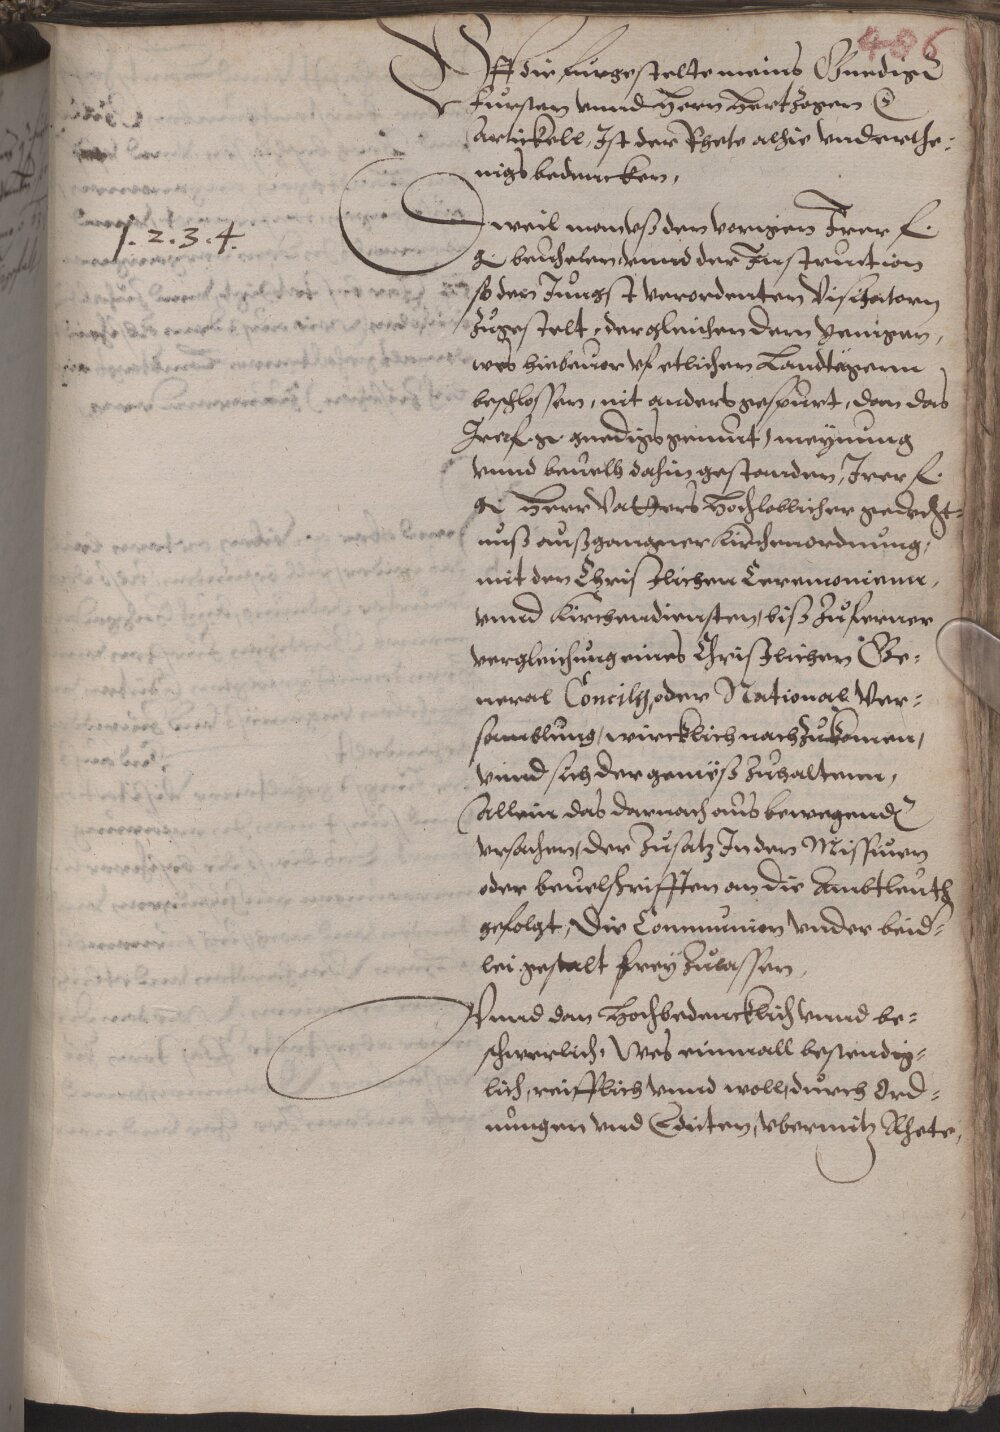 406
Vff die furgestelte meins Gnedigen
fursten vnnd Hern Hertzogen &c
Artickell, Ist der Rhete alhie vnderthe-
nigs bedencken,
1. 2. 3. 4.
Dweil man vß den vorigen Irer f.
g. beuhelen, vnnd der Instruction
so den Jungst verordenten Visitatorn
zugestelt, dergleichen dem yenigen,
wes hiebeuor vf etlichen Landtagenn
beschlossen, nit anders gespurt, dan das
Irer f. g. gnedigs gemut, meynung
vnnd beuelh dahin gestanden, Irer f.
g. Herr Vatters Hochloblicher gedecht-
nuß außgangner Kirchenordnung,
mit den Christlichen Ceremonienn,
vnnd Kirchendiensten, biß zu ferner
vergleichung eines Christlichen Ge-
neral Concilij, oder National Ver-
samblung, wircklich nachzukomen,
vnnd sich der gemeß zuhaltenn,
Allein das darnach aus bewegenden
vrsachen, der zusatz In den Missiuen
oder beuelschrifften an die Ambtleuth
gefolgt, Die Communion vnder beid-
lei gestalt frey zulassen,
Vnnd dan Hochbedencklich vnnd be-
schwerlich, Wes einmall bestendig-
lich, reifflich vnnd woll, durch Ord-
nungen vnd Edicten, vbermitz Rhete,